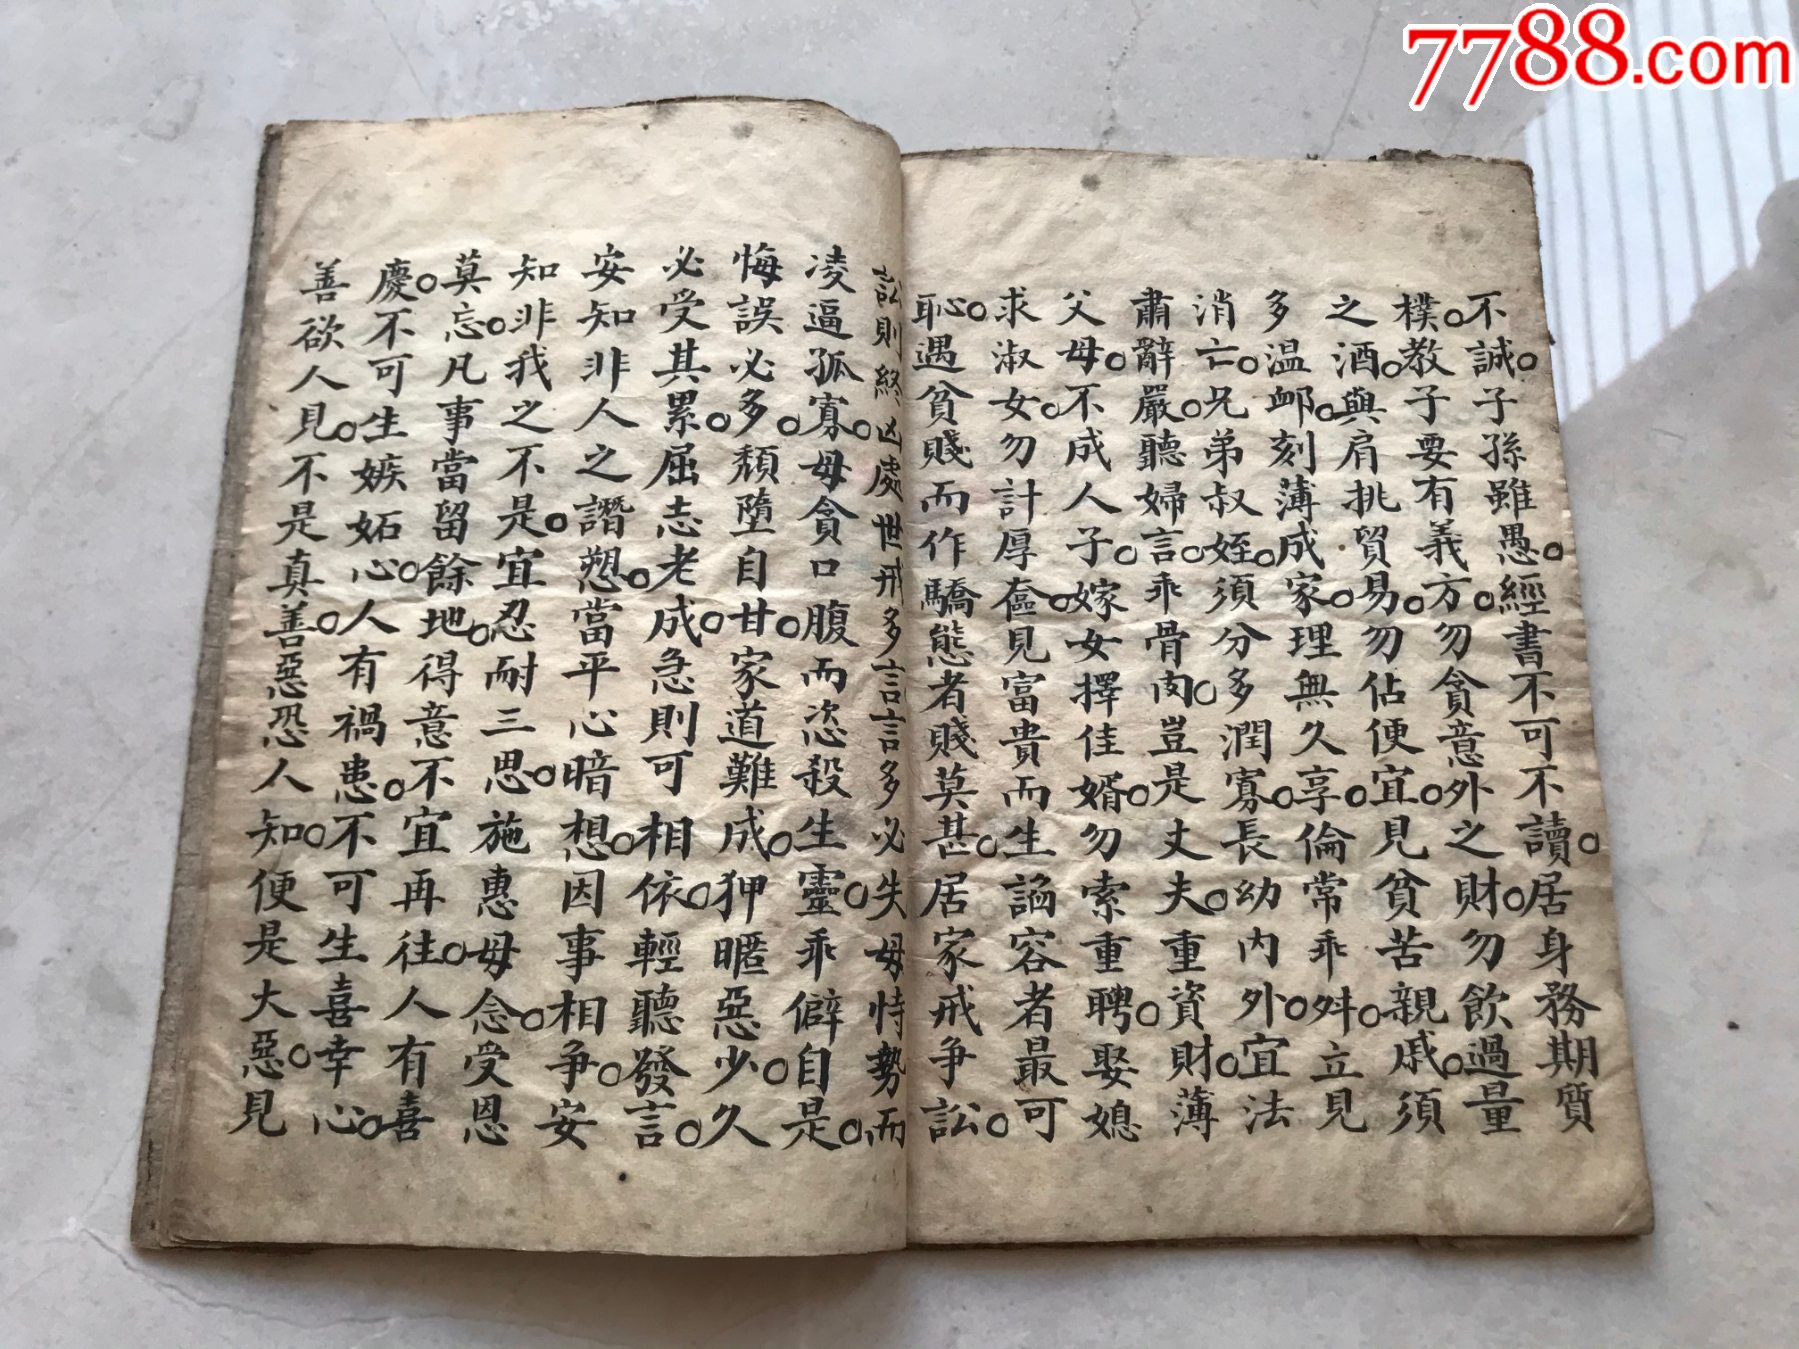 7788.com
不誠子孫雖愚經書不可不讀居身務期質
樸教子要有義方勿貪意外之財勿飲過量
之酒與肩挑貿易勿佔便宜見貧苦親戚須
多温卹刻薄成家理無久享倫常乖舛立見
消亡兄弟叔姪須分多潤寡長幼內外宜法
肅辭嚴聽婦言乖骨肉豈是丈夫重資財薄
父母不成人子嫁女擇佳婿勿索重聘娶媳
求淑女勿計厚奩見富貴而生謟容者最可
恥遇貧賤而作驕態者賤莫甚居家戒争訟
訟則終凶處世戒多言言多必失毋恃勢而
凌逼孤寡毋貪口腹而恣殺生靈乖僻自是
悔誤必多頹墮自甘家道難成狎暱惡少久
必受其累屈志老成急則可相依輕聽發言
安知非人之譖愬當平心暗想因事相争安
知非我之不是宜忍耐三思施惠毋念受恩
莫忘凡事當留餘地得意不宜再往人有喜
慶不可生嫉妬心人有禍患不可生喜幸心
善欲人見不是真善惡恐人知便是大惡見